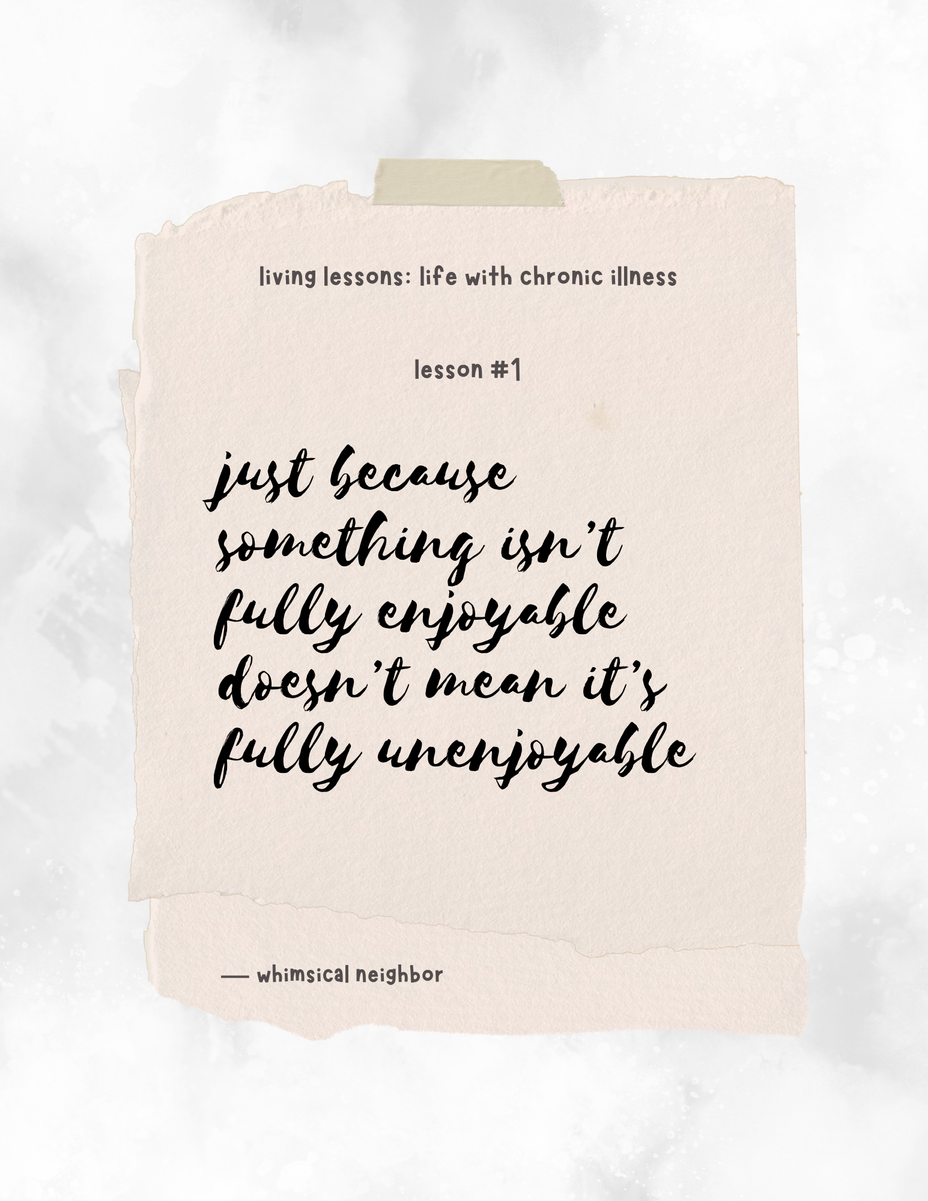 living lessons: life with chronic illness
lesson #1
just because
something isn't
fully enjoyable
doesn't mean it's
fully unenjoyable
— whimsical neighbor